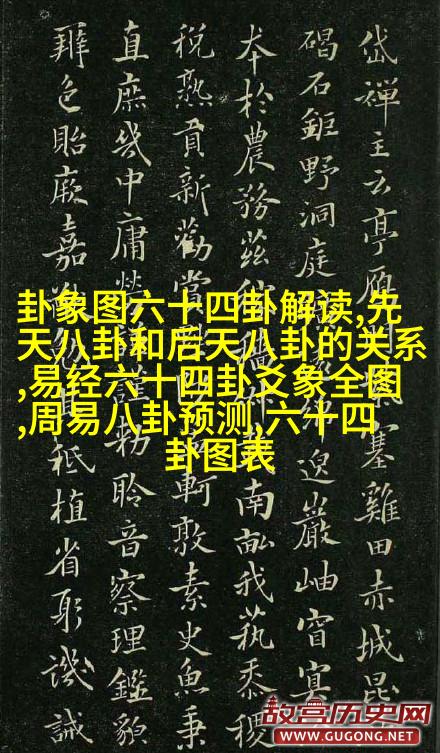 岱禪主云亭雁塞雞田赤城昆
碣石鉅野洞庭邈巖岫窅冥
本於農務茲稼南畝我蓺黍稷
稅熟貢新勸賞軻敦素史魚秉
直庶幾中庸勞謹勑聆音察理鑑貌
辨色貽厥嘉猷其祗植省躬譏誡
卦象图六十四卦解读,先
天八卦和后天八卦的关系
,易经六十四卦爻象全图
,周易八卦预测,六十四
卦图表
故宫历史网
WWW.GUGONG.NET